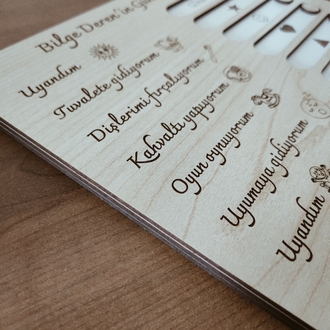 Bilge Deren'in Gün
Uyandım
Tuvalete gidiyorum
Dişlerimi fırçalıyorum
Kahvaltı yapıyorum
Oyun oynuyorum
Uyumaya gidiyorum
Uyandım